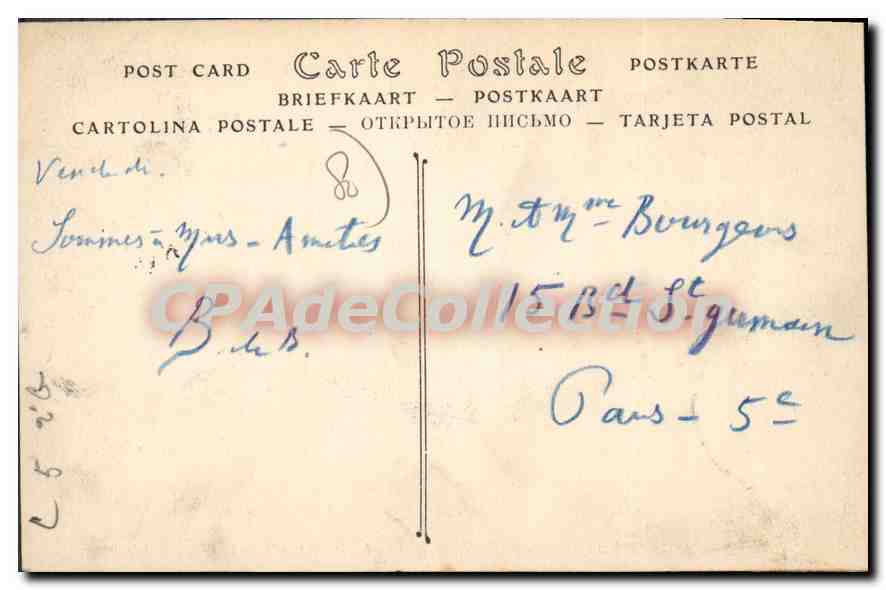 POST CARD Carte Postale POSTKARTE
BRIEFKAART — POSTKAART
CARTOLINA POSTALE — ОТКРЫТОЕ ПИСЬМО — TARJETA POSTAL
Vendredi.
Sommes à Mus - Amitiés
B. de B.
M. et Mme Bourgeois
15 Bd St. germain
Paris - 5e
CPAdeCollection